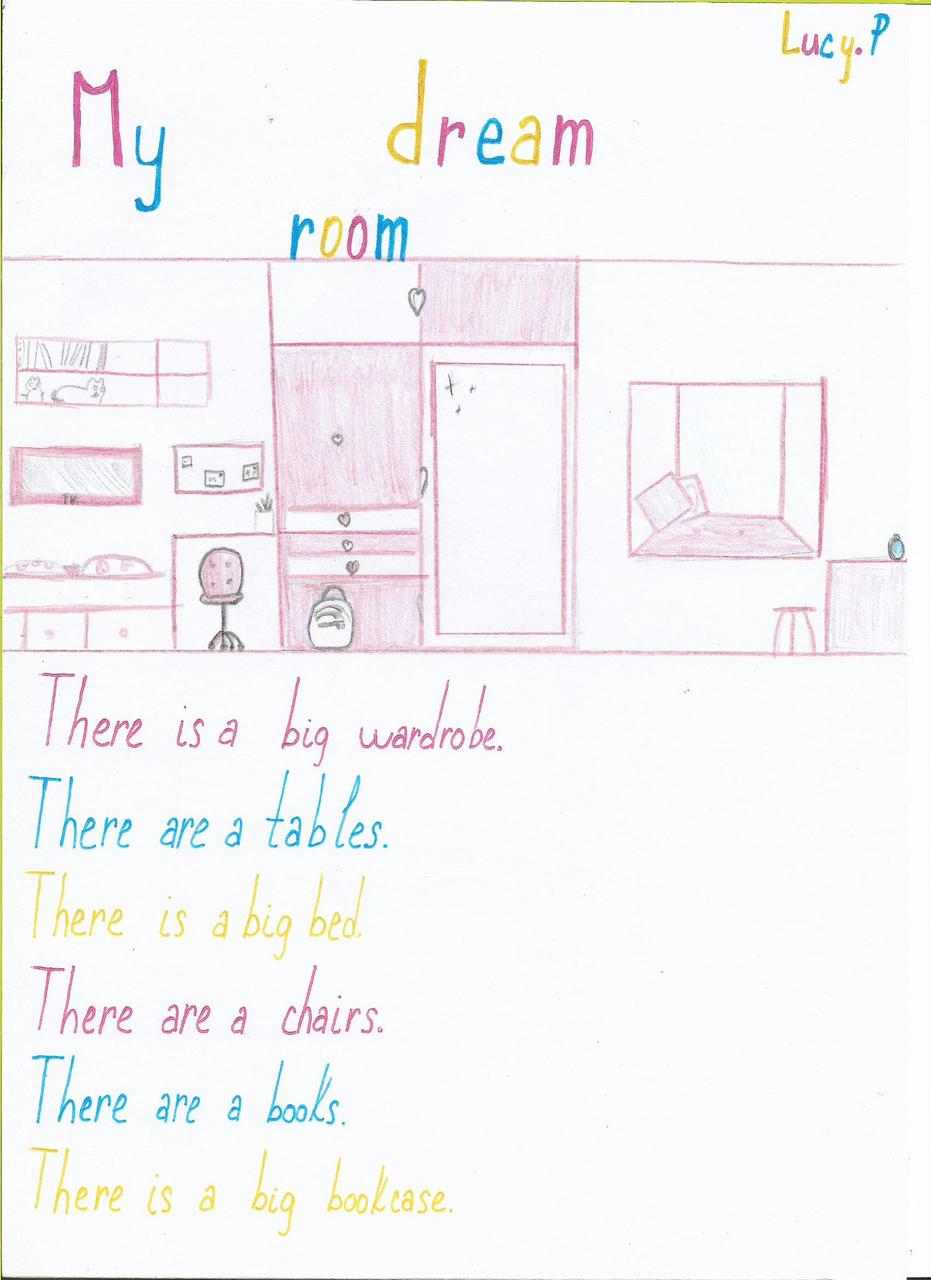 Lucy.P
My dream
room
TV
There is a big wardrobe.
There are a tables.
There is a big bed.
There are a chairs.
There are a books.
There is a big bookcase.